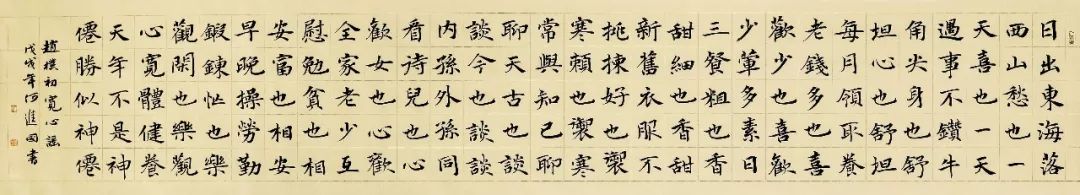 日出東海落
西山愁也一
天喜也一天
遇事不鑽牛
角尖身也舒
坦心也舒坦
每月領取養
老錢多也喜
歡少也喜歡
少葷多素日
三餐粗也香
甜細也香甜
新舊衣服不
挑揀好也禦
寒賴也禦寒
常與知己聊
聊天古也談
談今也談談
内孫外孫同
看待兒也心
歡女也心歡
全家老少互
慰勉貧也相
安富也相安
早晚操勞勤
鍛鍊忙也樂
觀閑也樂觀
心寬體健養
天年不是神
僊勝似神僊
趙樸初寬心謠
戊戌年何進國書